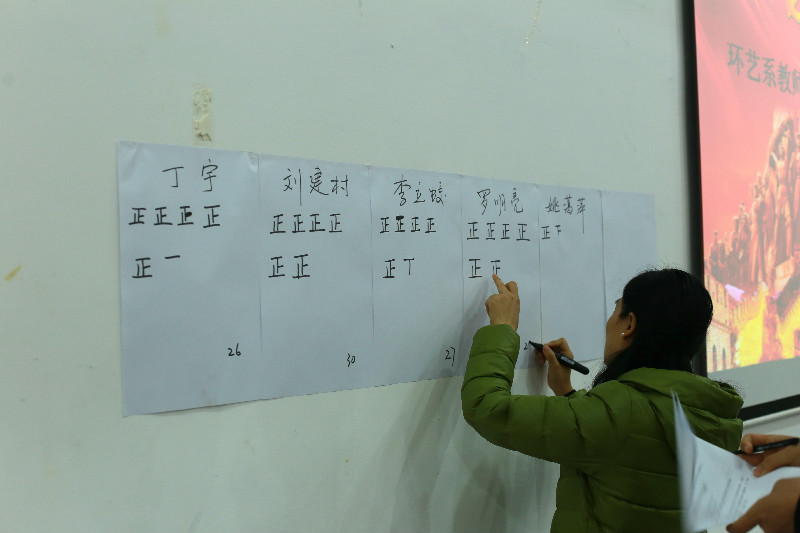 丁宇
正正正正
正一
26
刘建村
正正正正
正正
30
李立蛟
正正正正
正丅
27
罗明亮
正正正正
正正
2
姚蔼萍
正下
环艺系教师